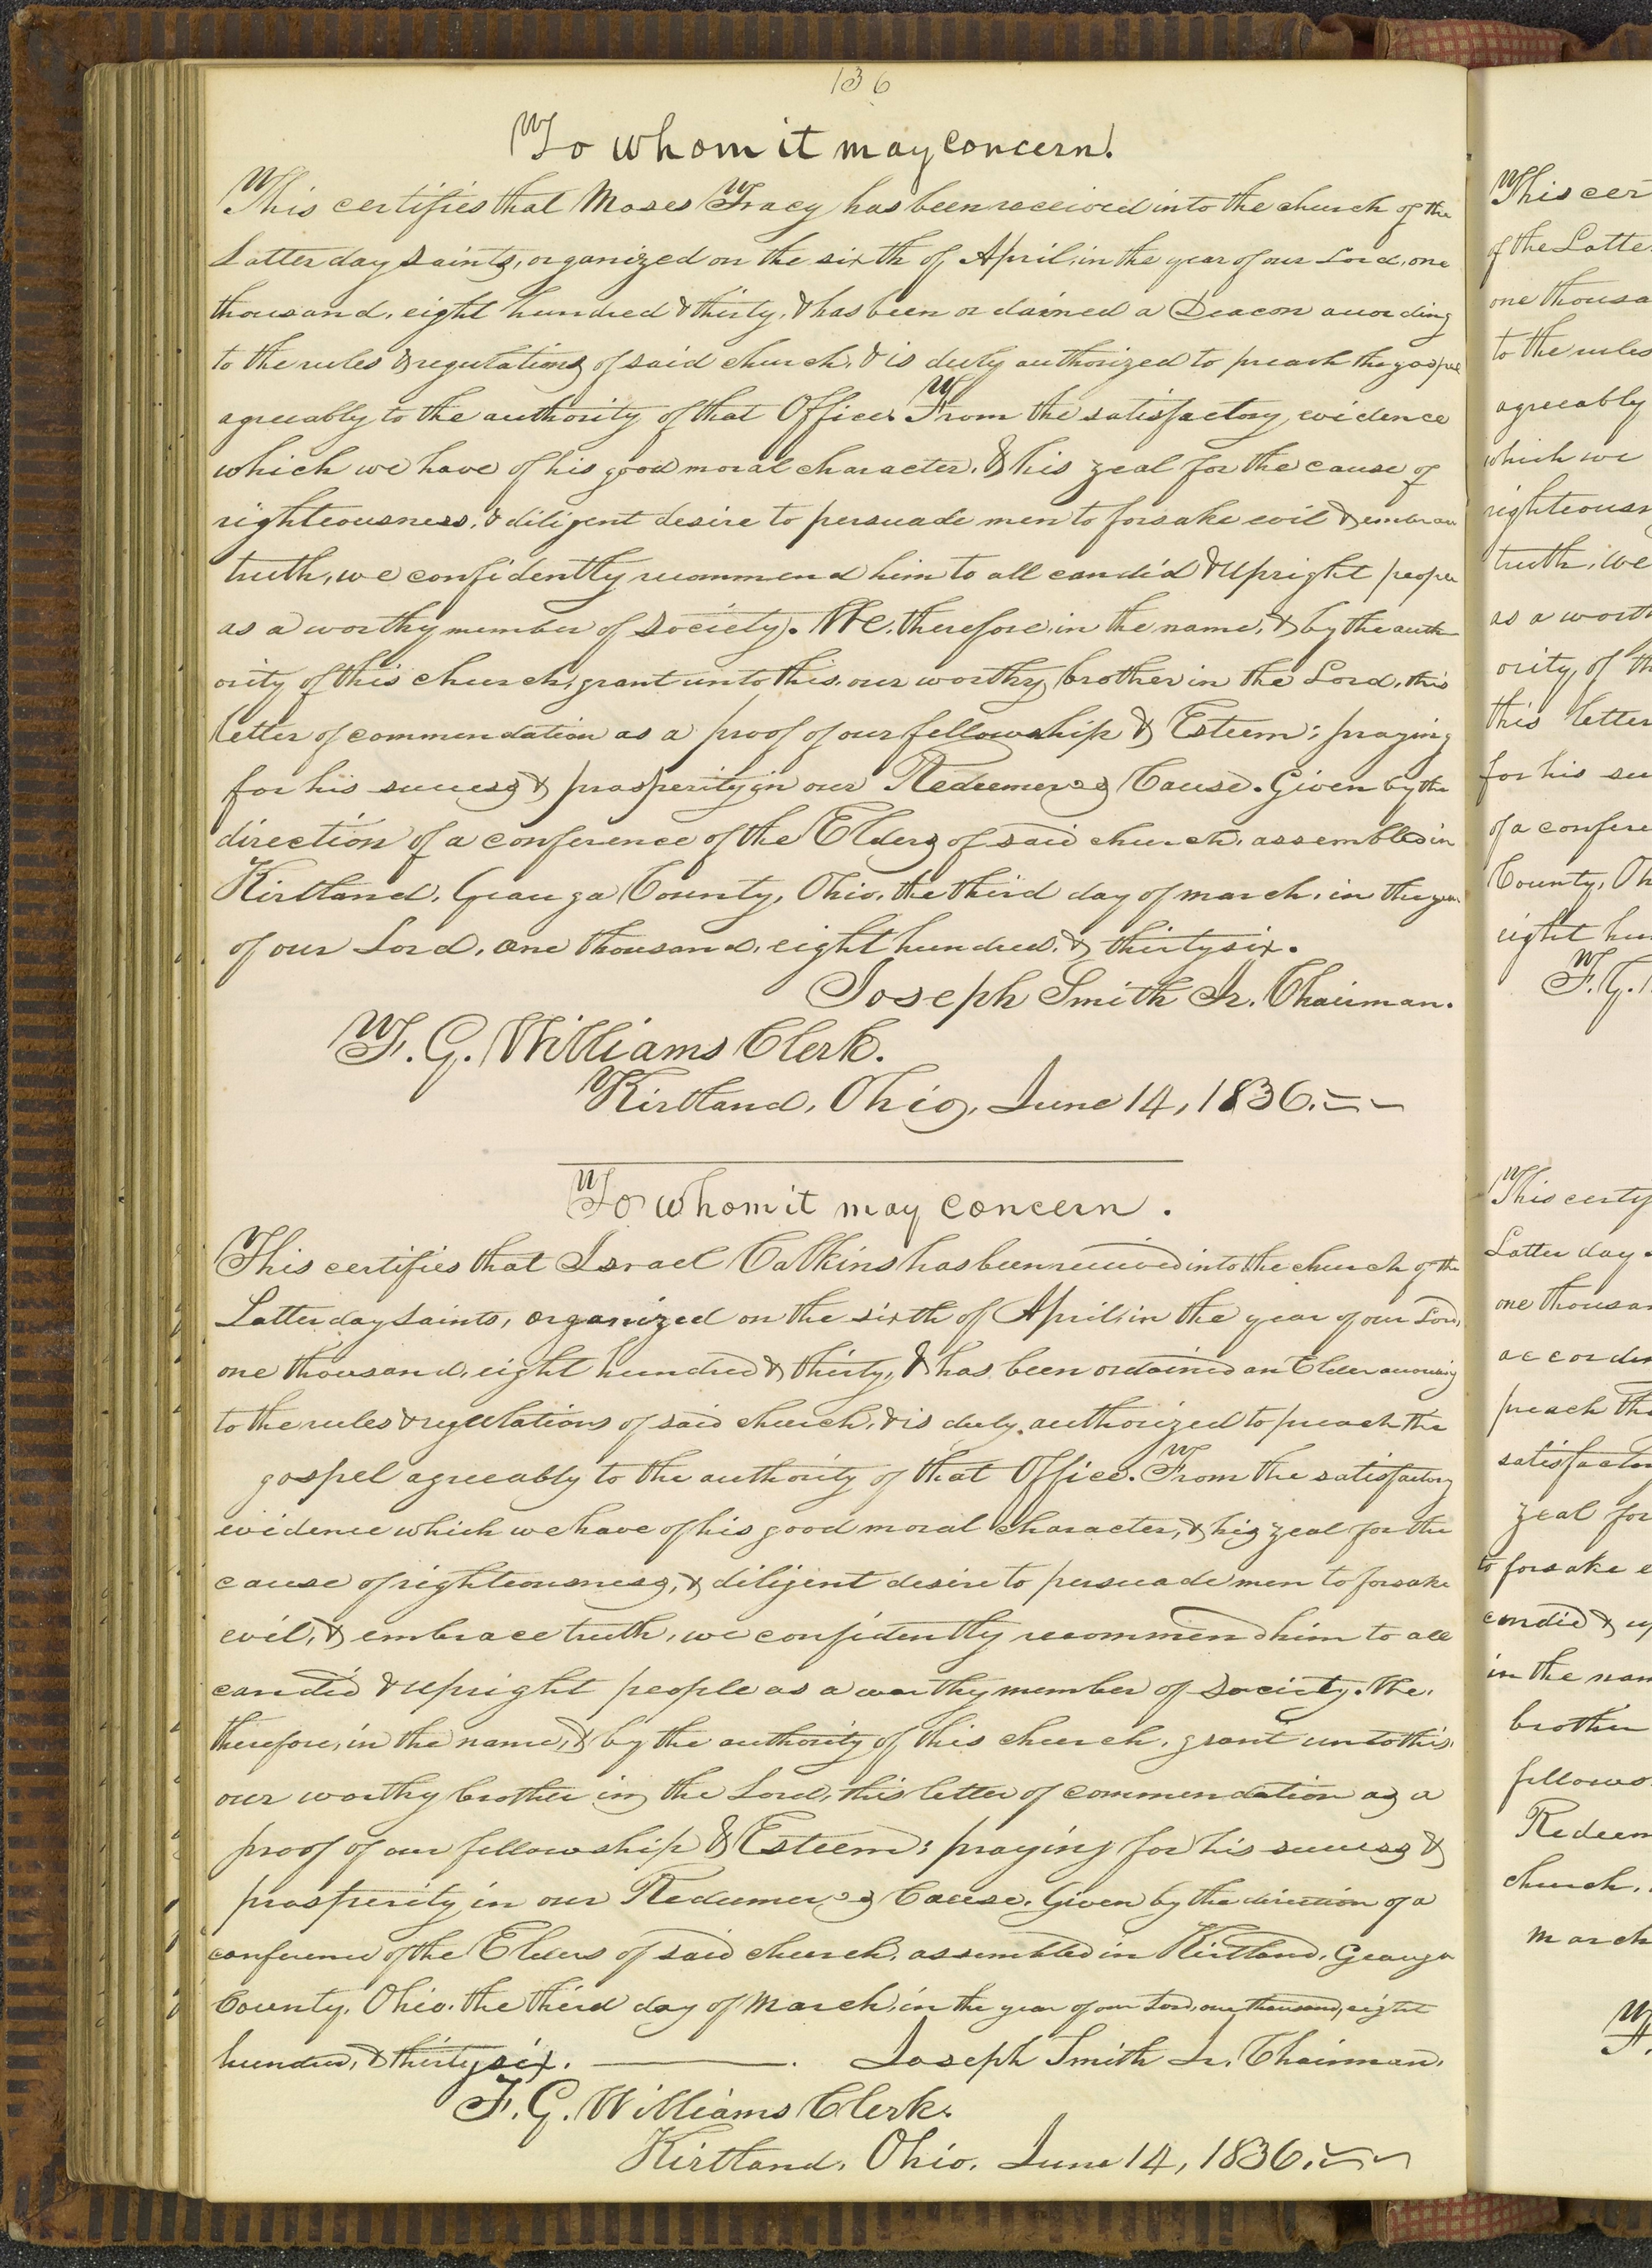 136
To whom it may concern.
This certifies that Moses Tracy has been received into the church of the
Latter day Saints, organized on the sixth of April, in the year of our Lord, one
thousand, eight hundred & thirty, & has been ordained a Deacon according
to the rules & regulations of said church, & is duly authorized to preach the gospel
agreeably to the authority of that Office. From the satisfactory evidence
which we have of his good moral character, & his zeal for the cause of
righteousness, & diligent desire to persuade men to forsake evil & embrace
truth, we confidently recommend him to all candid & upright people
as a worthy member of Society. We, therefore, in the name, & by the auth-
ority of this church, grant unto this, our worthy brother in the Lord, this
letter of commendation as a proof of our fellowship & Esteem; praying
for his success & prosperity in our Redeemer's Cause. Given by the
direction of a conference of the Elders of said church, assembled in
Kirtland, Geauga County, Ohio, the third day of march, in the year
of our Lord, one thousand, eight hundred, & thirty six.
Joseph Smith Jr. Chairman.
F. G. Williams Clerk.
Kirtland, Ohio, June 14, 1836.
To whom it may concern.
This certifies that Israel Calkins has been received into the church of the
Latter day Saints, organized on the sixth of April, in the year of our Lord,
one thousand, eight hundred & thirty, & has been ordained an Elder according
to the rules & regulations of said church, & is duly authorized to preach the
gospel agreeably to the authority of that Office. From the satisfactory
evidence which we have of his good moral character, & his zeal for the
cause of righteousness, & diligent desire to persuade men to forsake
evil, & embrace truth, we confidently recommend him to all
candid & upright people as a worthy member of Society. We,
therefore, in the name, & by the authority of this church, grant unto this,
our worthy brother in the Lord, this letter of commendation as a
proof of our fellowship & Esteem; praying for his success &
prosperity in our Redeemer's Cause. Given by the direction of a
conference of the Elders of said church, assembled in Kirtland, Geauga
County, Ohio, the third day of March, in the year of our Lord, one thousand, eight
hundred, & thirty six. Joseph Smith Jr. Chairman.
F. G. Williams Clerk.
Kirtland, Ohio, June 14, 1836.
This cer
of the Latte
one thousa
to the rules
agreeably
which we
righteousn
truth, we
as a worth
ority, of th
this letter
for his su
of a confere
County, Oh
eight hun
F. G.
This certif
Latter day
one thousan
accordin
preach the
satisfactor
zeal for
to forsake e
candid & up
in the nam
brother
fellows
Redeem
church,
March
F.